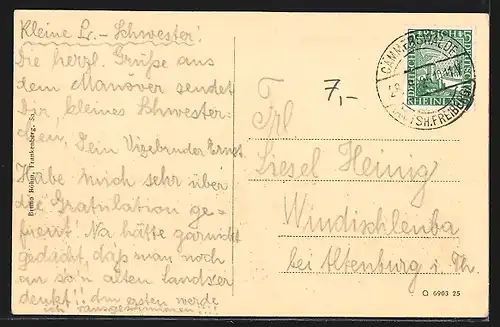 Kleine Lr. - Schwester!
Die herzl. Grüße aus
dem Manöver sendet
Dir, kleines Schwester-
chen, Dein Vizebruder Ernst.
Habe mich sehr über
die Gratulation ge-
freut! Na hätte garnicht
gedacht, daß man noch
an so'n alten Landser
denkt!! Am ersten werde
ich rausgeschmissen!!!!
Bruno Böhm, Frankenberg, Sa.
7,-
DEUTSCHES REICH
RHEIN
CÄMMERSWALDE
Frl.
Liesel Heinig
Windischleuba
bei Altenburg i. Th.
Q 6903 25